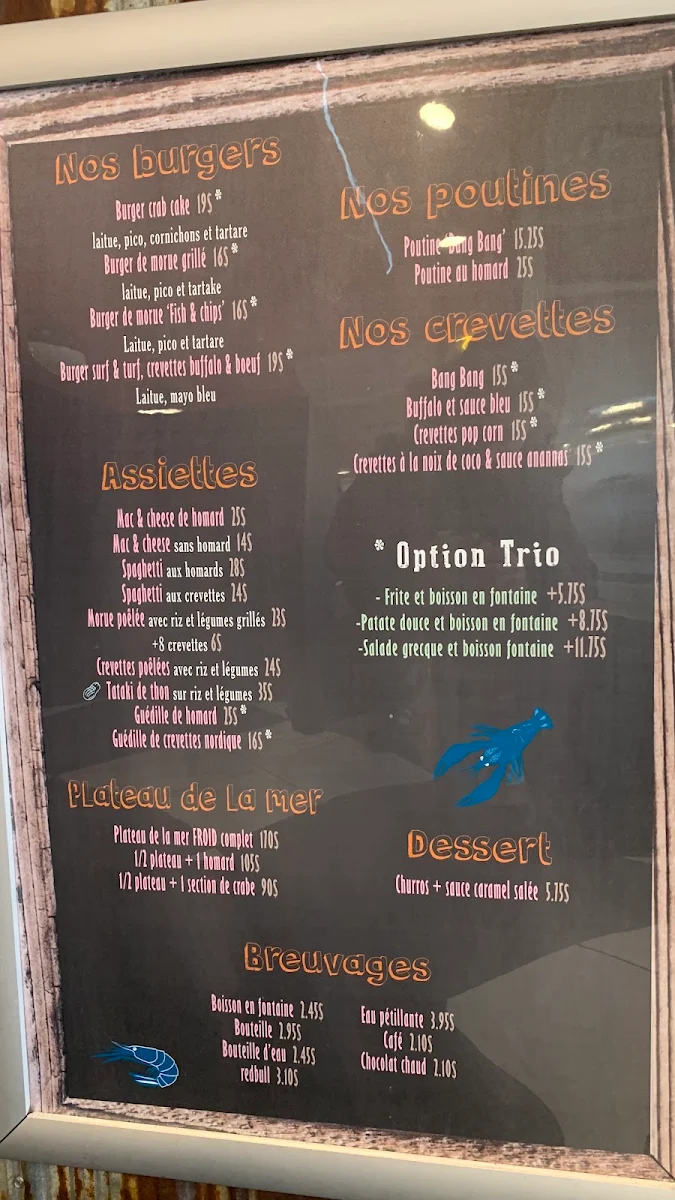 Nos burgers
Burger crab cake 19$*
laitue, pico, cornichons et tartare
Burger de morue grillé 16$*
laitue, pico et tartake
Burger de morue 'Fish & chips' 16$*
Laitue, pico et tartare
Burger surf & turf, crevettes buffalo & boeuf 19$*
Laitue, mayo bleu
Assiettes
Mac & cheese de homard 25$
Mac & cheese sans homard 14$
Spaghetti aux homards 28$
Spaghetti aux crevettes 24$
Morue poêlée avec riz et légumes grillés 23$
+8 crevettes 6$
Crevettes poêlées avec riz et légumes 24$
Tataki de thon sur riz et légumes 35$
Guédille de homard 25$*
Guédille de crevettes nordique 16$*
Plateau de la mer
Plateau de la mer FROID complet 170$
1/2 plateau + 1 homard 105$
1/2 plateau + 1 section de crabe 90$
Nos poutines
Poutine 'Bang Bang' 15.25$
Poutine au homard 25$
Nos crevettes
Bang Bang 15$*
Buffalo et sauce bleu 15$*
Crevettes pop corn 15$*
Crevettes à la noix de coco & sauce anannas 15$*
* Option Trio
- Frite et boisson en fontaine +5.75$
-Patate douce et boisson en fontaine +8.75$
-Salade grecque et boisson fontaine +11.75$
Dessert
Churros + sauce caramel salée 5.75$
Breuvages
Boisson en fontaine 2.45$
Bouteille 2.95$
Bouteille d'eau 2.45$
redbull 3.10$
Eau pétillante 3.95$
Café 2.10$
Chocolat chaud 2.10$